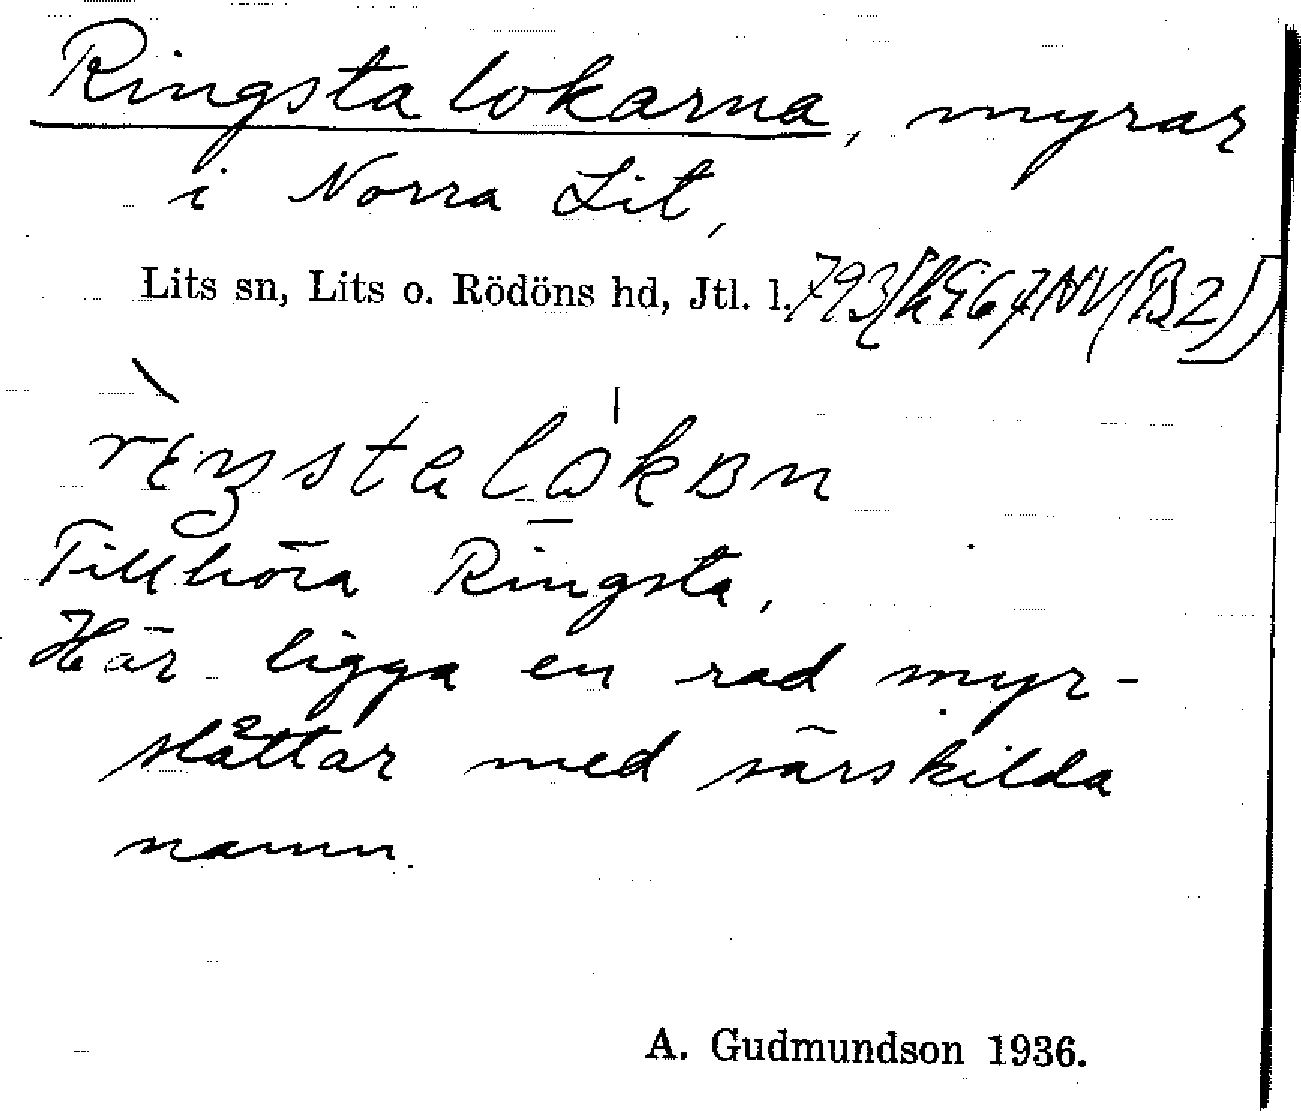 Ringstalokarna, myrar
i Norra Lit,
Lits sn, Lits o. Rödöns hd, Jtl. l.
Tillhöra Ringsta,
Här ligga en rad myr-
slåttar med särskilda
namn.
A. Gudmundson 1936.